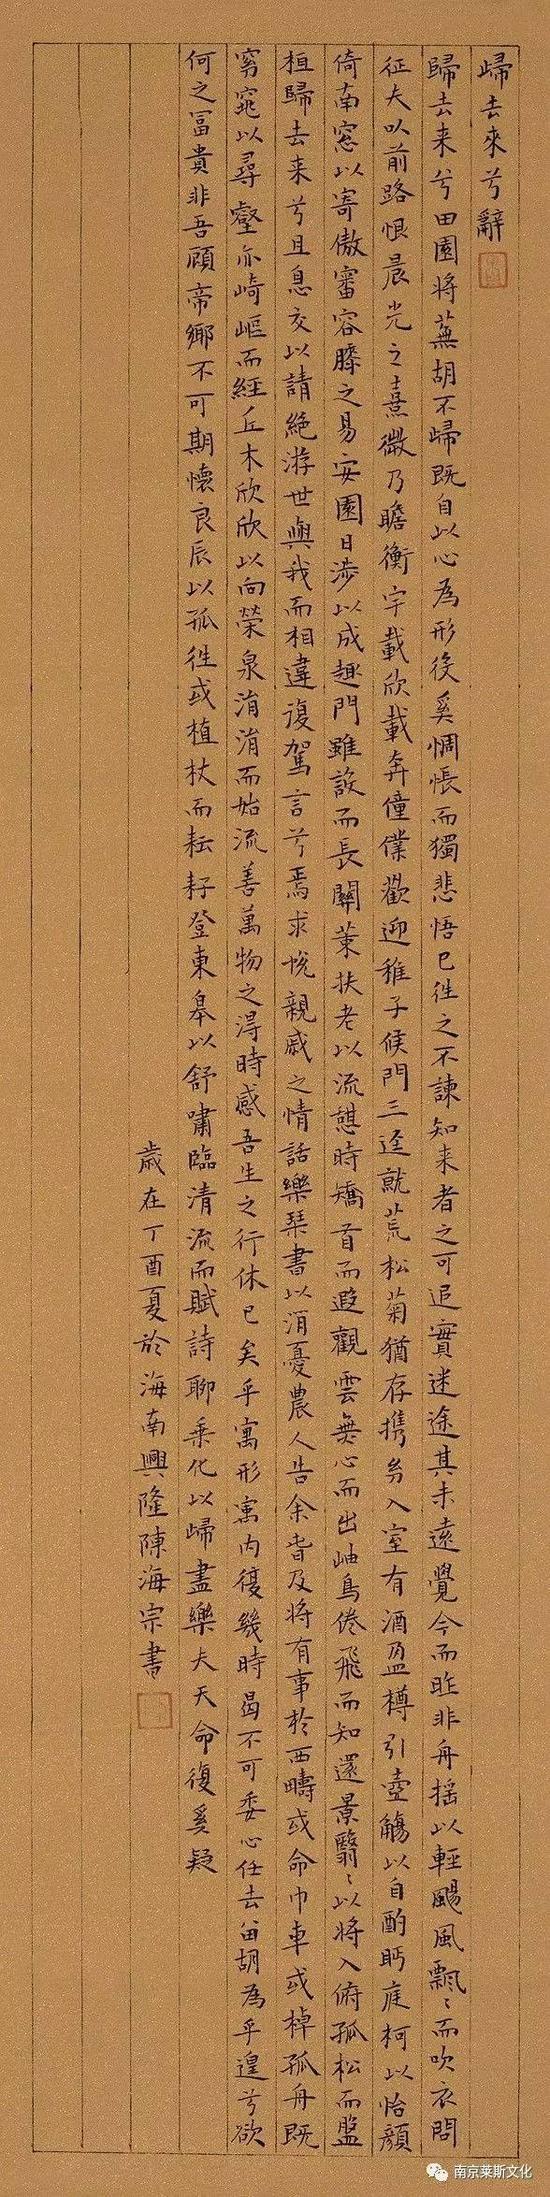 歸去來兮辭
歸去来兮田園将蕪胡不歸既自以心為形役奚惆悵而獨悲悟已往之不諫知来者之可追實迷途其未遠覺今而昨非舟揺以輕颺風飄〻而吹衣問
征夫以前路恨晨光之熹微乃瞻衡宇載欣載奔僮僕歡迎稚子候門三逕就荒松菊猶存携㓜入室有酒盈樽引壺觴以自酌眄庭柯以怡顔
倚南窓以寄傲審容膝之易安園日渉以成趣門雖設而長關策扶老以流憩時矯首而遐觀雲無心而出岫鳥倦飛而知還景翳〻以将入俯孤松而盤
桓歸去来兮且息交以請絶游世與我而相違復駕言兮焉求悦親戚之情話樂琴書以消憂農人告余春及将有事於西疇或命巾車或棹孤舟既
窈窕以尋壑亦崎嶇而経丘木欣欣以向榮泉涓涓而始流善萬物之得時感吾生之行休已矣乎寓形寓内復幾時曷不可委心任去留胡為乎遑兮欲
何之富貴非吾願帝鄉不可期懷良辰以孤往或植杖而耘耔登東皋以舒嘯臨清流而賦詩聊乗化以歸盡樂夫天命復奚疑
歲在丁酉夏於海南興隆陳海宗書
南京莱斯文化